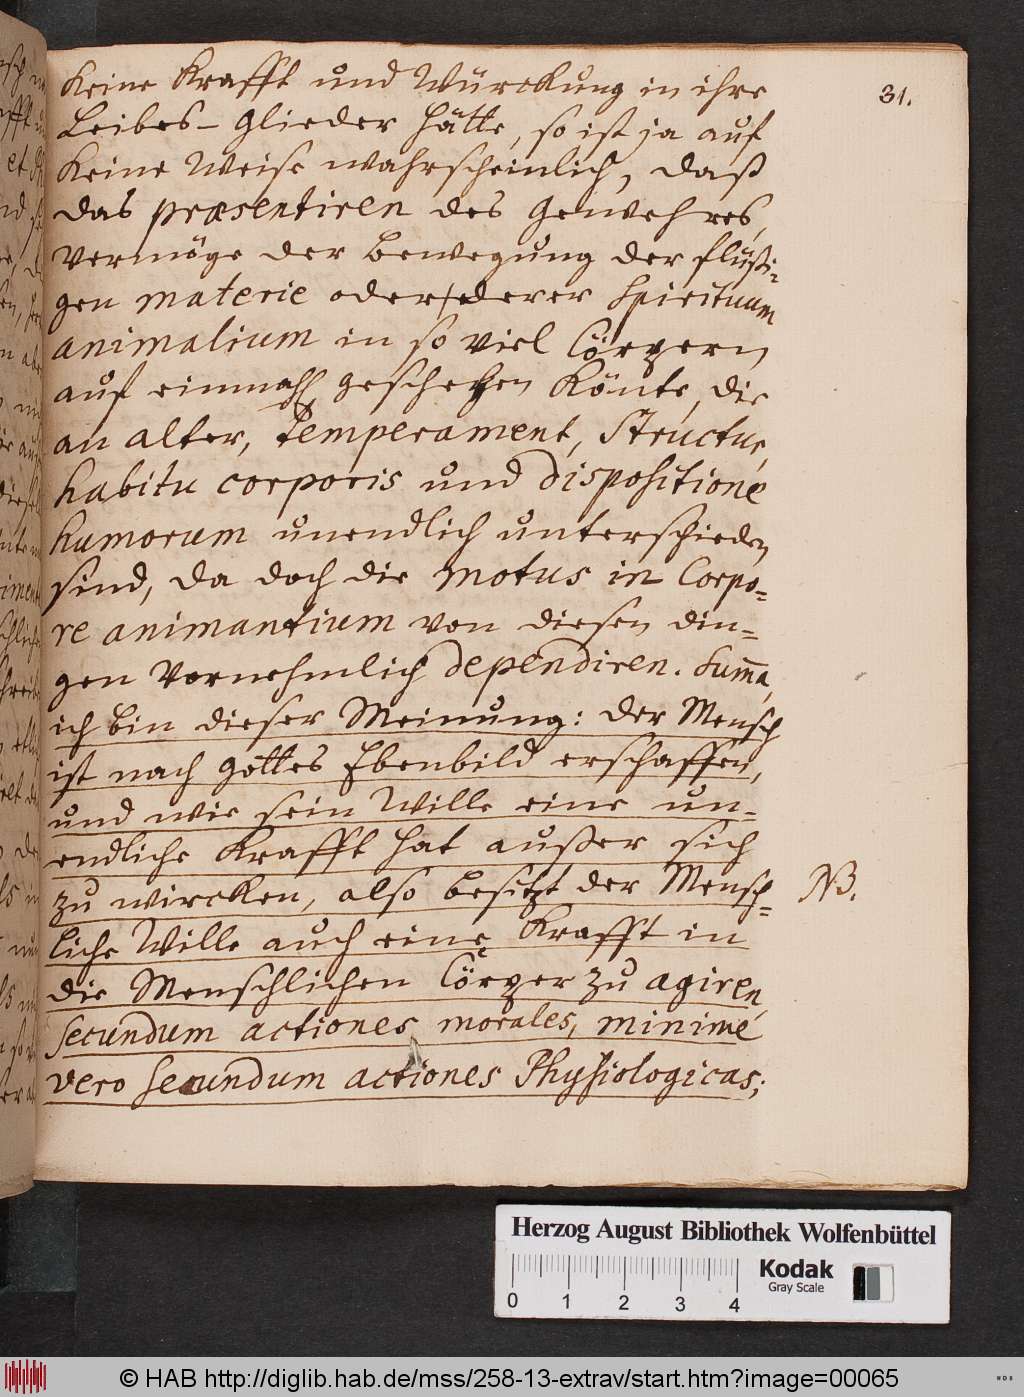 31.
Keine Krafft und Würckung in ihre
Leibes-Glieder hätte, so ist ja auf
Keine Weise wahrscheinlich, daß
das præsentiren des Gewehres,
vermöge der bewegung der flüßi-
gen materie oder derer Spirituum
animalium in so viel Cörpern
auf einmahl geschehen Könte, die
an alter, Temperament, Structur,
habitu corporis und dispositione
humorum unendlich unterschieden
sind, da doch die motus in Corpo=
re animantium von diesen din=
gen Vornehmlich dependiren. Summa,
ich bin dieser Meinung: der Mensch
ist nach Gottes Ebenbild erschaffen,
und wie sein Wille eine un-
endliche Krafft hat außer sich
zu wircken, also besitzt der Mensch=
liche Wille auch eine Krafft in
NB.
die Menschlichen Cörper zu agiren
secundum actiones morales, minime
vero secundum actiones Physiologicas;
Herzog August Bibliothek Wolfenbüttel
0 1 2 3 4
Kodak
Gray Scale
© HAB http://diglib.hab.de/mss/258-13-extrav/start.htm?image=00065